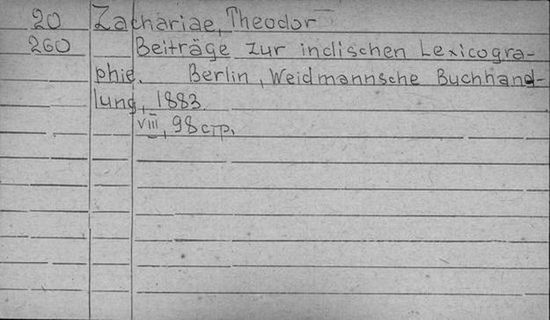 20 Zachariae, Theodor
260 Beiträge zur indischen Lexicogra-
phie. Berlin, Weidmannsche Buchhand-
lung, 1883.
VIII, 98 стр.